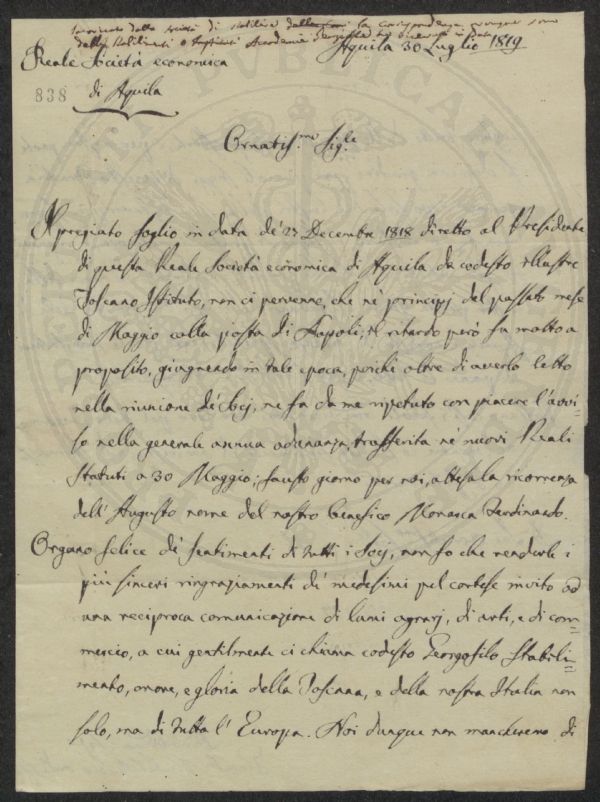 Incaricato dalla società di stabilire la corrispondenza
Aquila 30 Luglio 1819
Reale Società economica
838
di Aquila
Ornatis.mo Sig.re
Il pregiato foglio in data de' 23 Decembre 1818 diretto al Presidente
di questa Reale Società economica di Aquila da codesto illustre
Toscano Istituto, non ci pervenne, che ne' principj del passato mese
di Maggio colla posta di Napoli; il ritardo però fu molto a
proposito, giugnendo in tale epoca, poichè oltre di averlo letto
nella riunione de' Socj, ne fu da me ripetuto con piacere l'avvi-
so nella generale annua adunanza, trasferita ne' nuovi Reali
Statuti a 30 Maggio; fausto giorno per noi, attesa la ricorrenza
dell' Augusto nome del nostro benefico Monarca Ferdinando.
Organo felice de' sentimenti di tutti i Socj, non fo che renderle i
più sinceri ringraziamenti de' medesimi pel cortese invito ad
una reciproca comunicazione di lumi agrarj, di arti, e di com=
mercio, a cui gentilmente ci chiama codesto Georgofilo Stabili=
mento, onore, e gloria della Toscana, e della nostra Italia non
solo, ma di tutta l' Europa. Noi dunque non mancheremo di